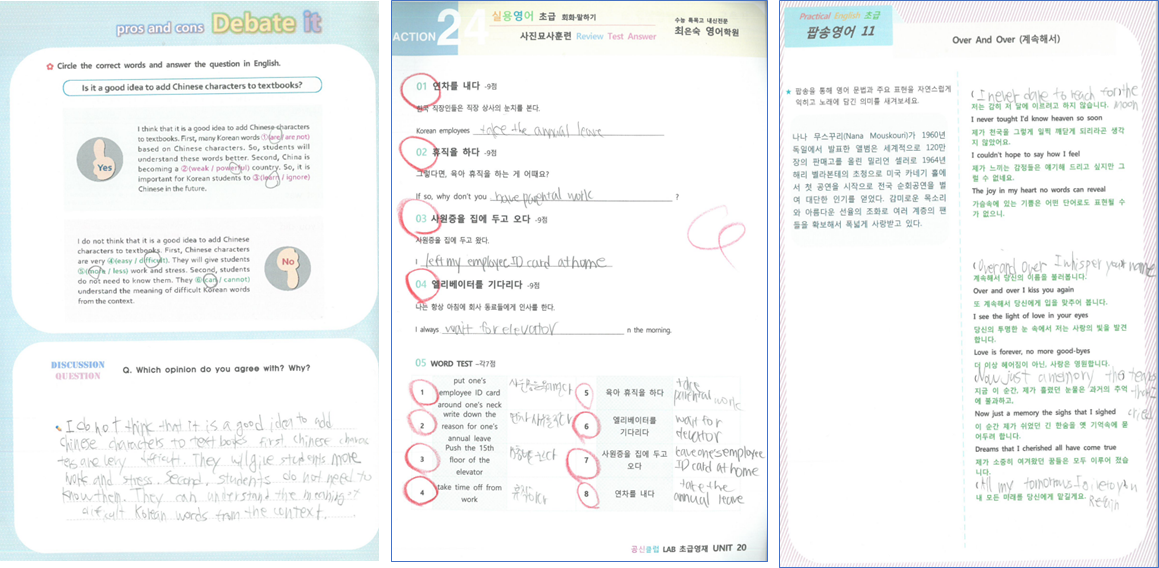 pros and cons Debate it
✿ Circle the correct words and answer the question in English.
Is it a good idea to add Chinese characters to textbooks?
Yes
I think that it is a good idea to add Chinese characters
to textbooks. First, many Korean words ①(are/ are not)
based on Chinese characters. So, students will
understand these words better. Second, China is
becoming a ②(weak / powerful) country. So, it is
important for Korean students to ③(learn / ignore)
Chinese in the future.
I do not think that it is a good idea to add Chinese
characters to textbooks. First, Chinese characters
are very ④(easy / difficult). They will give students
⑤(more / less) work and stress. Second, students
do not need to know them. They ⑥(can / cannot)
understand the meaning of difficult Korean words
from the context.
No
DISCUSSION
QUESTION
Q. Which opinion do you agree with? Why?
I do not think that it is a good idea to add
chinese characters to textbooks. first, chinese charac
ters are very. They will give students more
work and stress. Second, students do not need to
know them. They can understand the meaning of
difficult Korean words from the context.
ACTION 24
실용영어 초급 회화·말하기
사진묘사훈련 Review Test Answer
수능 특목고 내신전문
최은숙 영어학원
01 연차를 내다 -9점
한국 직장인들은 직장 상사의 눈치를 본다.
Korean employees take the annual leave
02 휴직을 하다 -9점
그렇다면, 육아 휴직을 하는 게 어때요?
If so, why don't you have parental work ?
03 사원증을 집에 두고 오다 -9점
사원증을 집에 두고 왔다.
I left my employee ID card at home
04 엘리베이터를 기다리다 -9점
나는 항상 아침에 회사 동료들에게 인사를 한다.
I always wait for elevator n the morning.
05 WORD TEST –각7점
1 put one's employee ID card around one's neck
2 write down the reason for one's annual leave
3 Push the 15th floor of the elevator
4 take time off from work 휴직하다
5 육아 휴직을 하다 take parental work
6 엘리베이터를 기다리다 wait for elevator
7 사원증을 집에 두고 오다 leave one's employee ID card at home
8 연차를 내다 take the annual leave
공신클럽 LAB 초급영재 UNIT 20
Practical English 초급
팝송영어 11
Over And Over (계속해서)
★ 팝송을 통해 영어 문법과 주요 표현을 자연스럽게
익히고 노래에 담긴 의미를 새겨보세요.
나나 무스꾸리(Nana Mouskouri)가 1960년
독일에서 발표한 앨범은 세계적으로 120만
장의 판매고를 올린 밀리언 셀러로 1964년
해리 벨라폰테의 초청으로 미국 카네기 홀에
서 첫 공연을 시작으로 전국 순회공연을 벌
여 대단한 인기를 얻었다. 감미로운 목소리
와 아름다운 선율의 조화로 여러 계층의 팬
들을 확보해서 폭넓게 사랑받고 있다.
I never dare to reach for the moon
저는 감히 저 달에 이르려고 하지 않습니다.
I never tought I'd know heaven so soon
제가 천국을 그렇게 일찍 깨닫게 되리라곤 생각
지 않았어요.
I couldn't hope to say how I feel
제가 느끼는 감정들은 얘기해 드리고 싶지만 그
럴 수 없네요.
The joy in my heart no words can reveal
가슴속에 있는 기쁨은 어떤 단어로도 표현될 수
가 없으니.
Over and over I whisper your name
계속해서 당신의 이름을 불러봅니다.
Over and over I kiss you again
또 계속해서 당신에게 입을 맞추어 봅니다.
I see the light of love in your eyes
당신의 투명한 눈 속에서 저는 사랑의 빛을 발견
합니다.
Love is forever, no more good-byes
더 이상 헤어짐이 아닌, 사랑은 영원합니다.
Now just a memory the tears that I cried
지금 이 순간, 제가 흘렸던 눈물은 과거의 추억
에 불과하고.
Now just a memory the sighs that I sighed
이 순간 제가 쉬었던 긴 한숨을 옛 기억속에 묻
어두려 합니다.
Dreams that I cherished all have come true
제가 소중히 여겨왔던 꿈들은 모두 이루어 졌습
니다.
All my tomorrows I give to you
내 모든 미래를 당신에게 맡길게요.